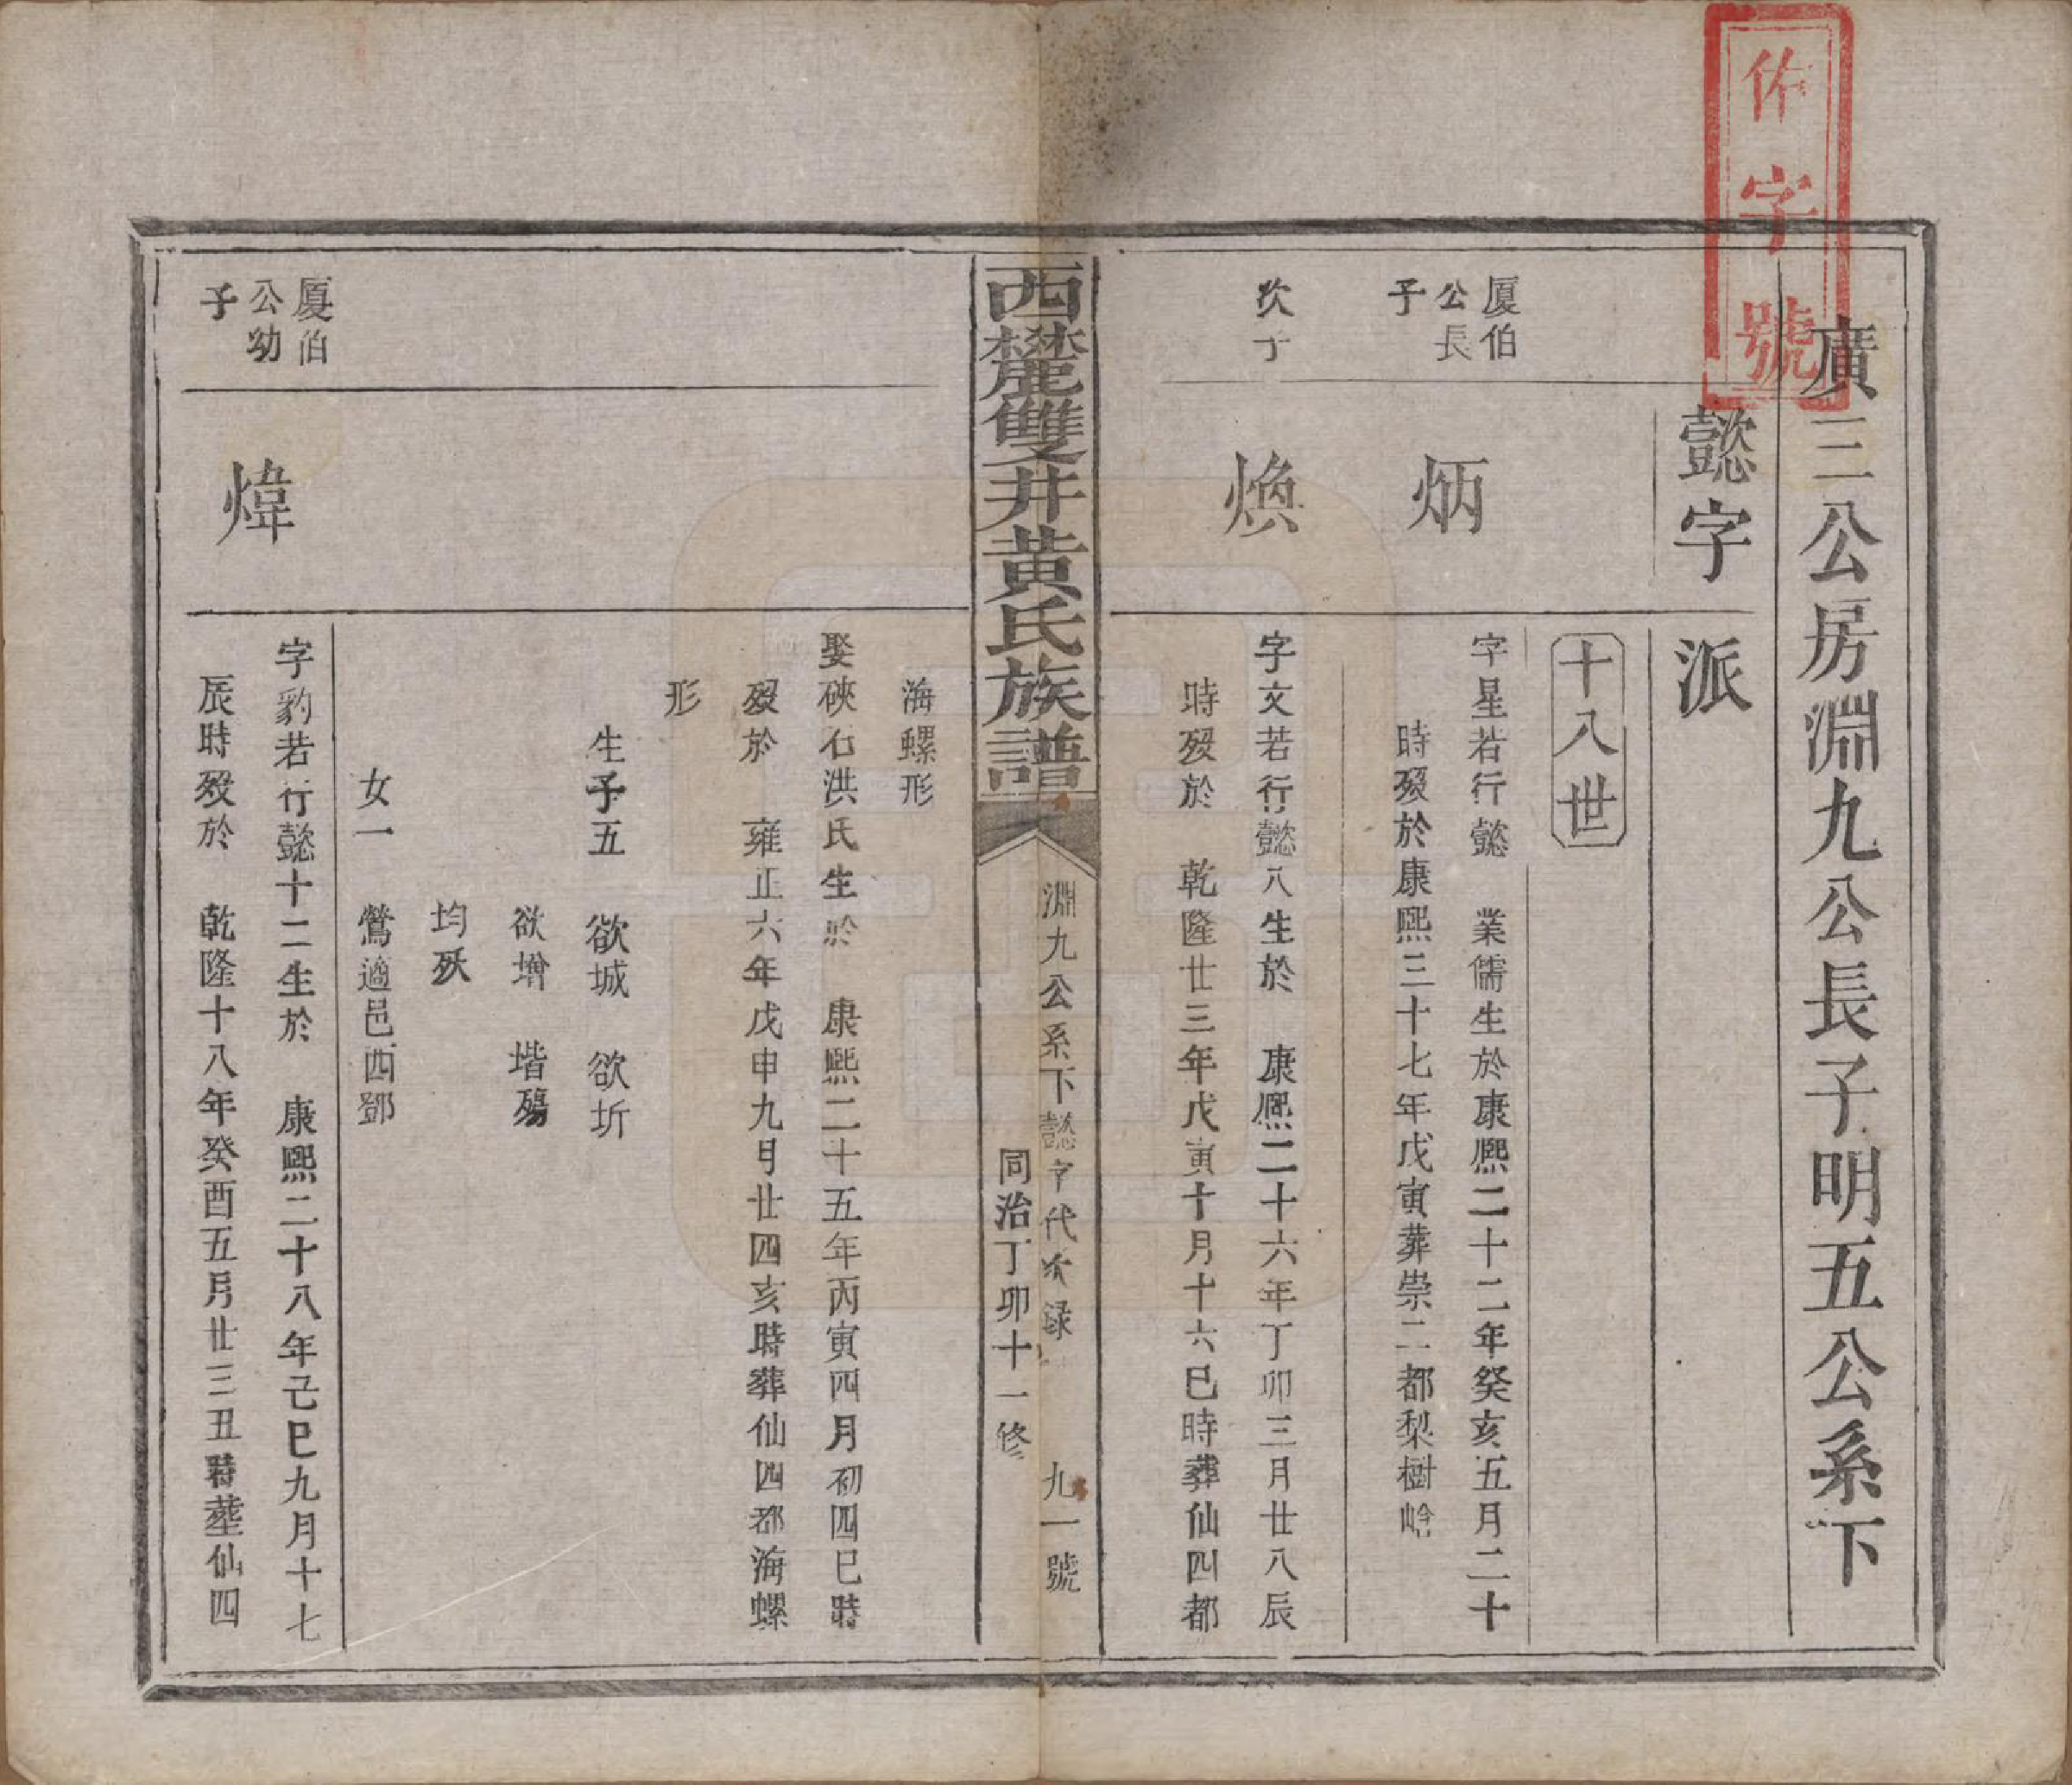 佑字號
廣三公房淵九公長子明五公系下
懿字派
十八世
厦伯公長子
炳
字星若行懿 業儒生於康熙二十二年癸亥五月二十
時歿於康熙三十七年戊寅葬崇二都梨樹峆
次子
煥
字文若行懿八生於 康熙二十六年丁卯三月廿八辰
時歿於 乾隆廿三年戊寅十月十六巳時葬仙四都
西麓雙井黃氏族譜
淵九公系下懿字代次录 九一號
同治丁卯十一修
海螺形
娶硤石洪氏生於 康熙二十五年丙寅四月初四巳時
歿於 雍正六年戊申九月廿四亥時葬仙四都海螺
形
生子五 欲城 欲圻
欲增 堦殤
均殀
女一 鶯適邑西鄧
厦伯公幼子
煒
字豹若行懿十二生於 康熙二十八年己巳九月十七
辰時歿於 乾隆十八年癸酉五月廿三丑時葬仙四